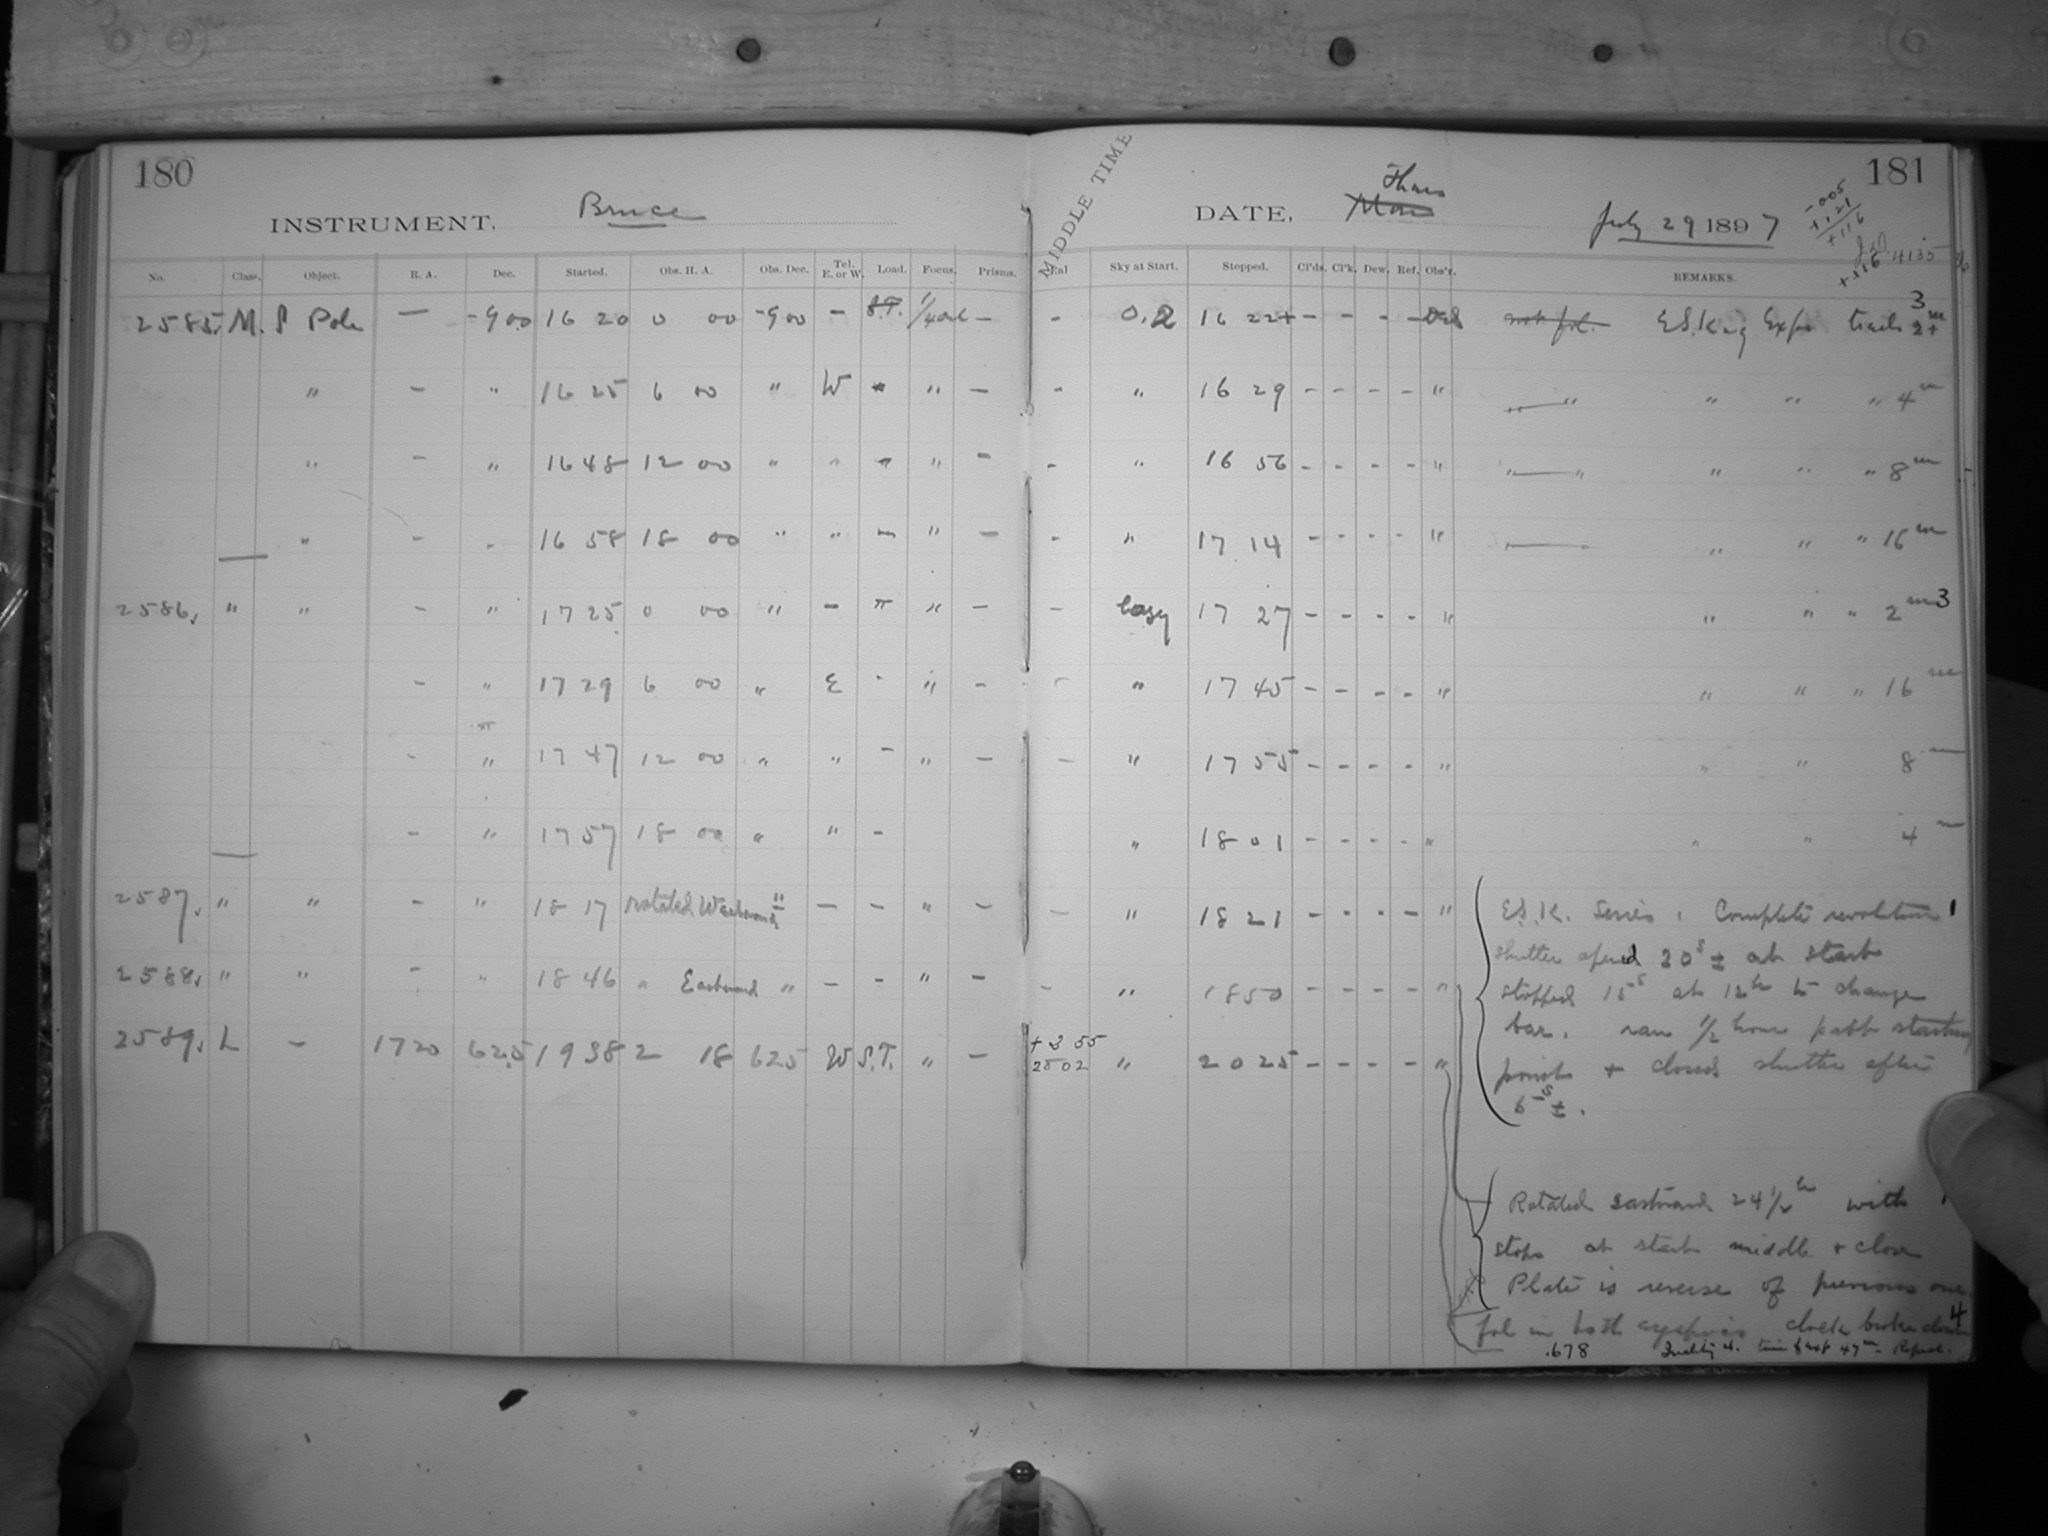 180
INSTRUMENT, Bruce
No. Class. Object. R. A. Dec. Started. Obs. H. A. Obs. Dec. Tel. E. or W. Load. Focus. Prisms.
2585. M. S Pole — -900 16 20 0 00 -900 – S.T. –
" – " 16 25 6 00 " W " –
" – " 16 48 12 00 " " " –
" – " 16 58 18 00 " " – " –
2586. " " – " 17 25 0 00 " – " –
– " 17 29 6 00 " E " –
– " 17 47 12 00 " " – " –
– " 17 57 18 00 " " –
2587. " " – " 18 17 rotated Westward " – – " –
2588. " " – " 18 46 " Eastward " – – " –
2589. L – 1720 625 19 38 2 18 625 W S.T. " –
181
MIDDLE TIME
DATE, Mon Thurs July 29 1897
-005
+121
+116
J.D. 4135
+116
Sky at Start. Stopped. Cl'ds. Cl'k. Dew. Ref. Obs'r. REMARKS.
– 0.2 16 22+ – – – – not fol. E.S. King Expo trails 2+ m 3
– " 16 29 – – – – " " " " " 4 m
– " 16 56 – – – – " " " " " " 8 m
– " " 17 14 – – – – " " " " 16 m
– hazy 17 27 – – – – " " " " 2 m 3
– " 17 45 – – – – " " " " 16 m
– " 17 55 – – – – " " " 8 m
" 18 01 – – – – " " " 4 m
– " 18 21 – – – – " E.S.K. Series. Complete revolution 1
shutter opened 20s ± at start
– " 1850 – – – – " stopped 15s at 12h to change
bar. ran 1/2 hour past starting
+3 55
2802 " 20 25 – – – – " point + closed shutter after
± .
Rotated eastward 24 1/2 h with
stops at start middle + close
Plate is reverse of previous one
fol in both eyepieces clock broke down 4
.678 Quality 4. time of exp 47m Repeat.